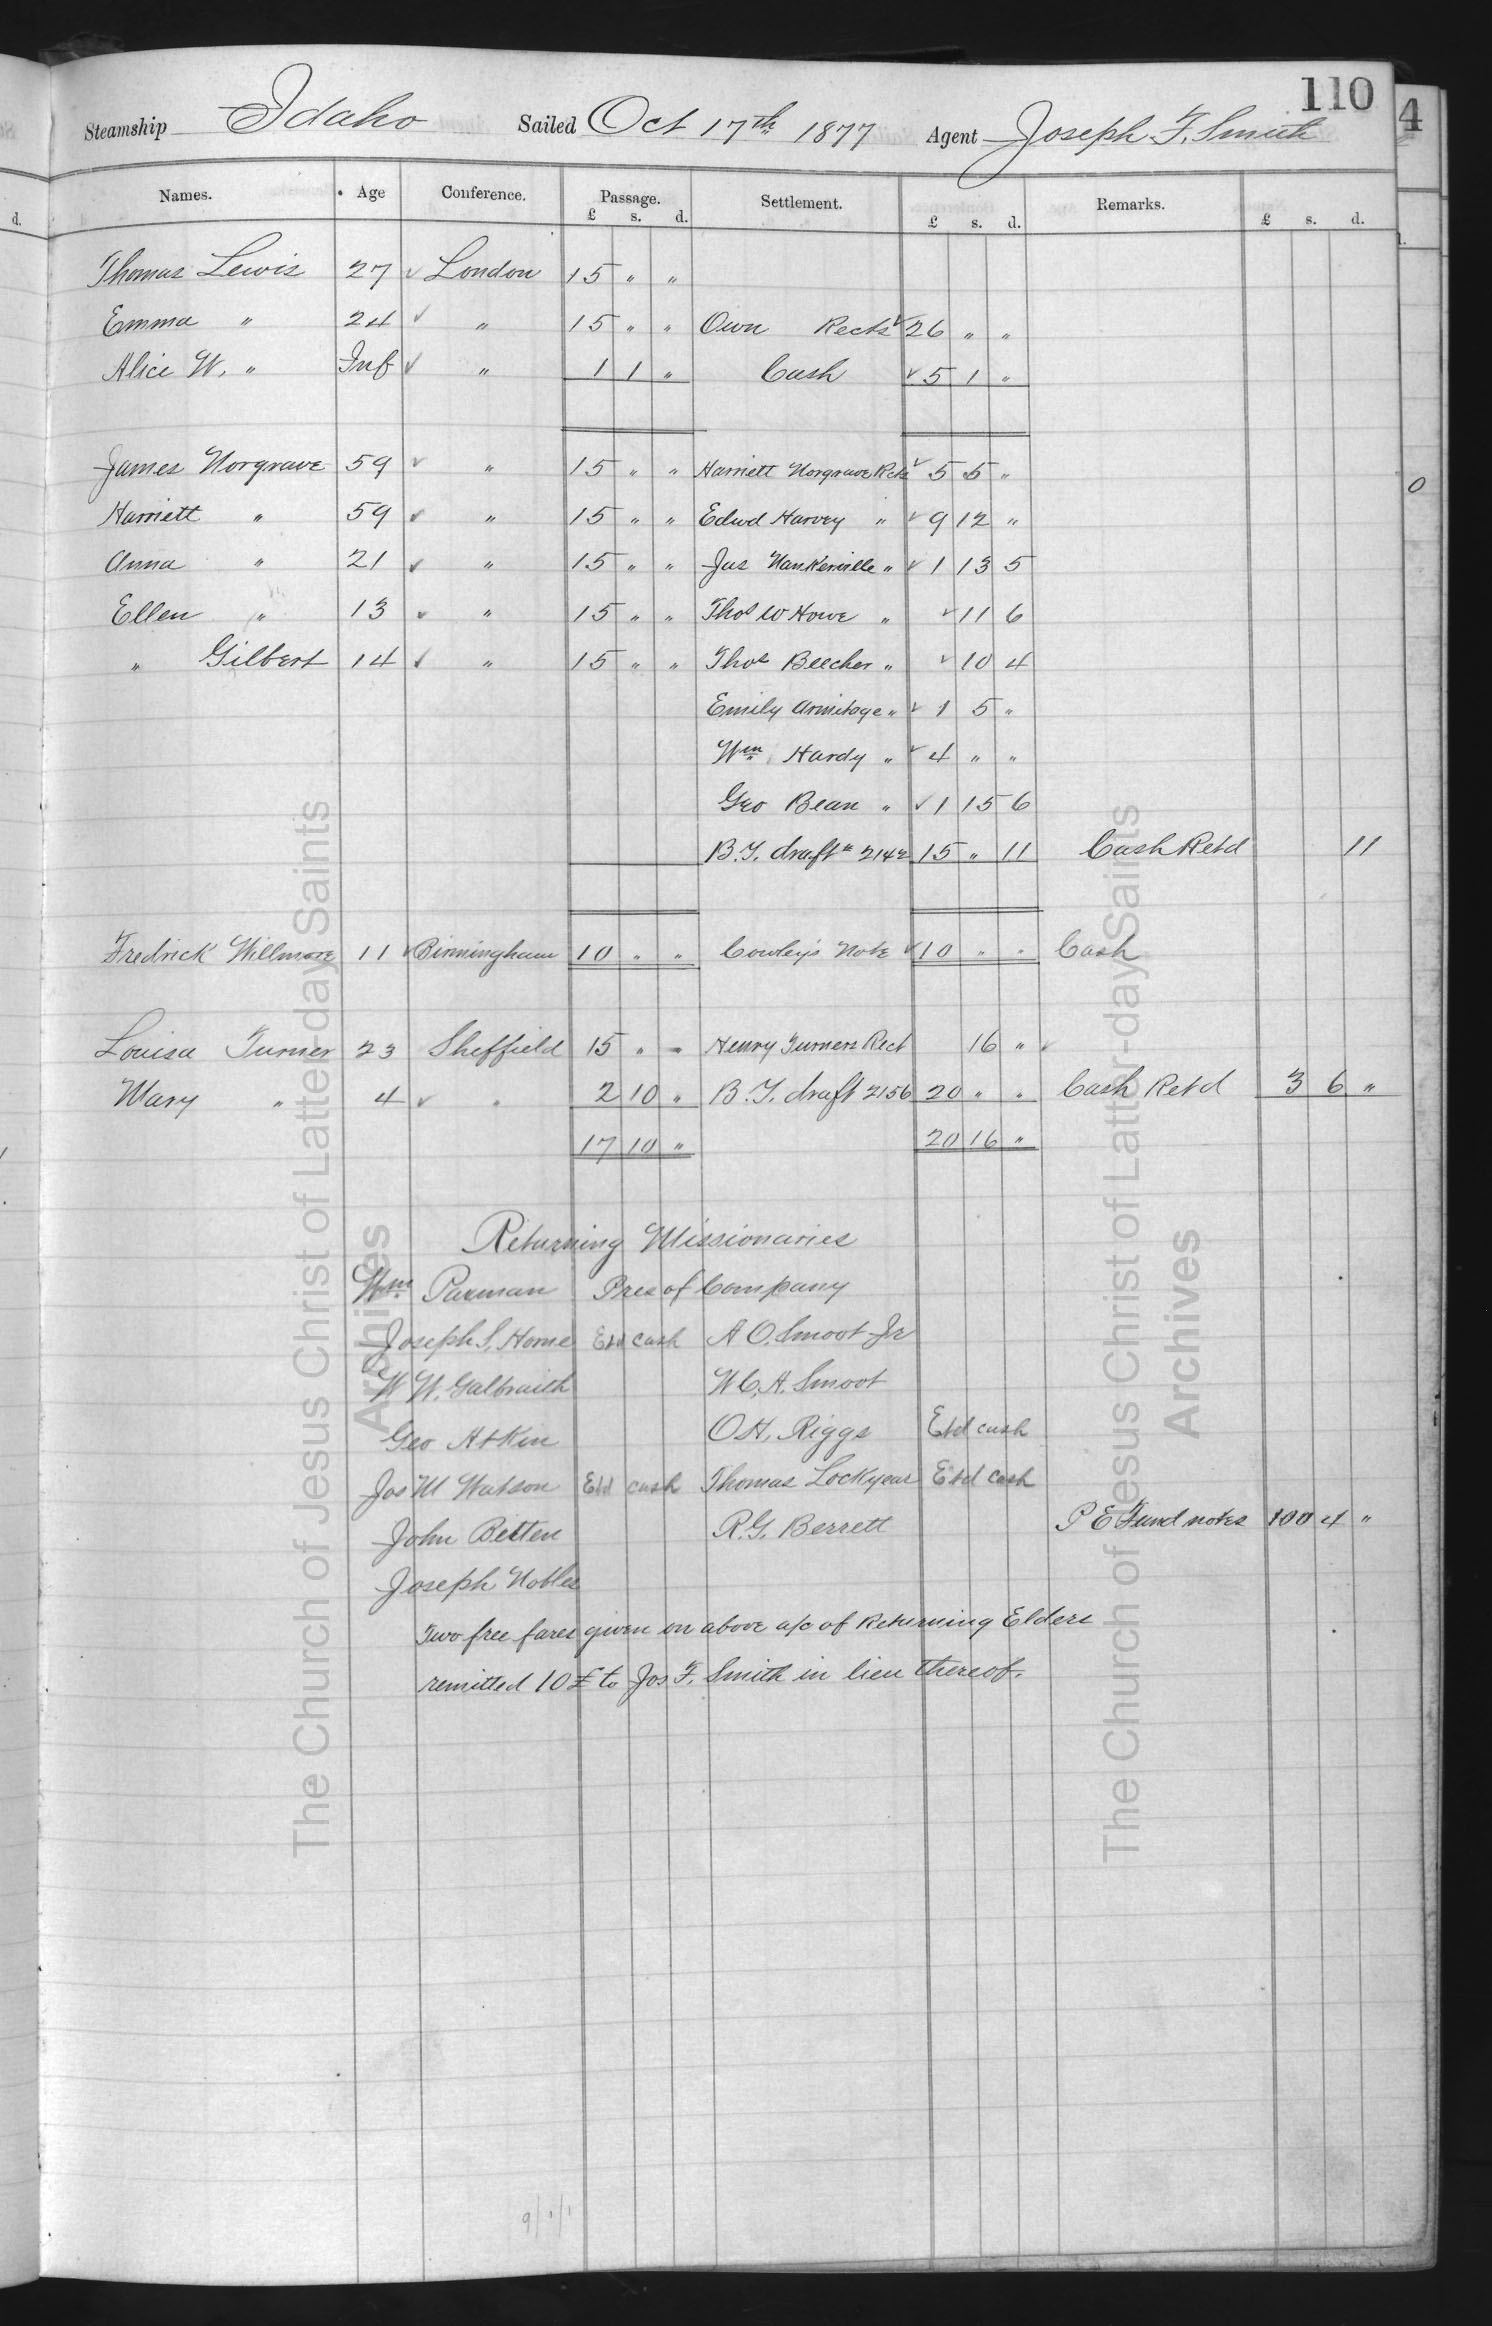 110
Steamship Idaho Sailed Oct 17th 1877 Agent Joseph F. Smith
Names. Age Conference. Passage. £ s. d. Settlement. £ s. d. Remarks. £ s. d.
Thomas Lewis 27 ✓ London 15 " "
Emma " 24 ✓ " 15 " " Own Rects ✓ 26 " "
Alice W. " Inf ✓ " 1 1 " Cash ✓ 5 1 "
James Norgrave 59 ✓ " 15 " " Harriett Norgrave Rcts ✓ 5 5 "
Harriett " 59 ✓ " 15 " " Edwd Harvey " ✓ 9 12 "
Anna " 21 ✓ " 15 " " Jas Nankerville " ✓ 1 13 5
Ellen " 13 ✓ " 15 " " Thos W Howe " ✓ 11 6
" Gilbert 14 ✓ " 15 " " Thos Beecher " ✓ 10 4
Emily Armitage " ✓ 1 5 "
Wm Hardy " ✓ 4 " "
Geo Bean " ✓ 1 15 6
B.Y. draft # 2142 15 " 11 Cash Retd 11
Fredrick Willmore 11 ✓ Birmingham 10 " " Cowley's Note ✓ 10 " " Cash
Louisa Turner 23 Sheffield 15 " " Henry Turners Rect 16 " ✓
Mary " 4 ✓ " 2 10 " B.Y. draft 2156 20 " " Cash Retd 3 6 "
17 10 " 20 16 "
Returning Missionaries
Wm Paxman Pres of Company
Joseph S. Horne Etd cash A O. Smoot Jr
W W. Galbraith W. C. A. Smoot
Geo Atkin O H. Riggs Etd cash
Jos M Watson Etd cash Thomas Lockyear Etd cash
John Betten R. G. Berrett P E Fund notes 100 4 "
Joseph Nobles
Two free fares given on above a/c of Returning Elders
remitted 10£ to Jos F. Smith in lieu thereof.
The Church of Jesus Christ of Latter-day Saints
Archives
The Church of Jesus Christ of Latter-day Saints
Archives